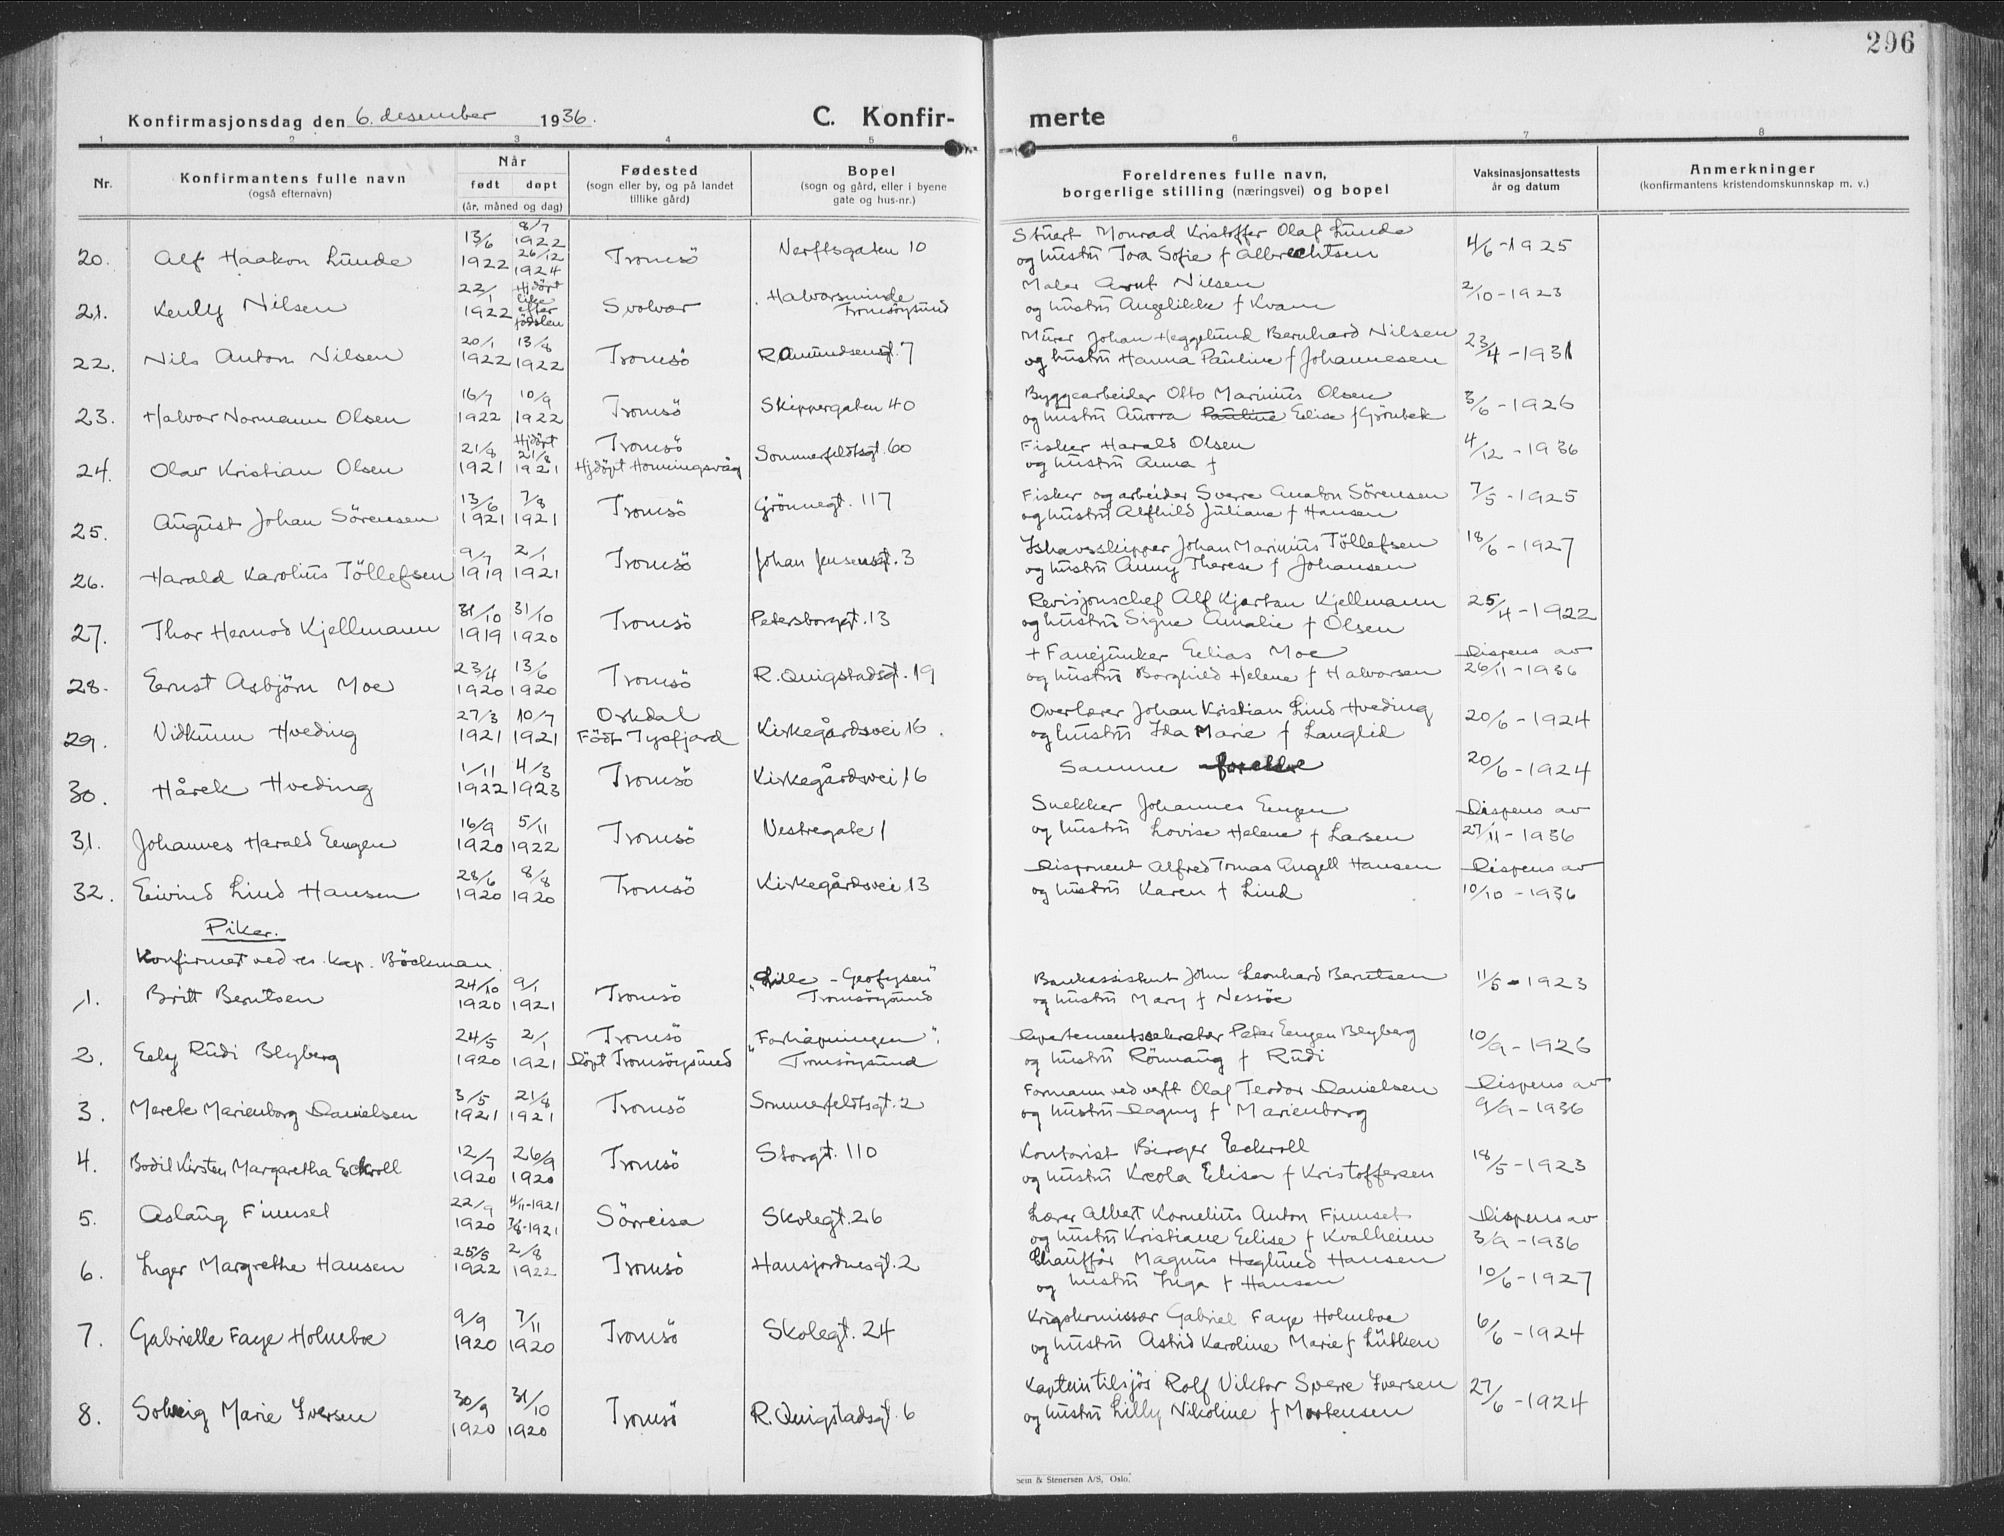 296
Konfirmasjonsdag den 6. desember 1936.
C. Konfir- merte
1 2 3 4 5 6 7 8
Nr.
Konfirmantens fulle navn
(også efternavn)
Når
født døpt
(år, måned og dag)
Fødested
(sogn eller by, og på landet
tillike gård)
Bopel
(sogn og gård, eller i byene
gate og hus-nr.)
Foreldrenes fulle navn,
borgerlige stilling (næringsvei) og bopel
Vaksinasjonsattests
år og datum
Anmerkninger
(konfirmantens kristendomskunnskap m. v.)
20. Alf Haakon Lunde 13/6 1922 8/7 1922 26/12 1924 Tromsö Nerftsgaten 10 Stuert Monrad Kristoffer Olaf Lunde 4/6-1925
og hustru Tora Sofie f Albrechtsen
21. Kenly Nilsen 22/1 1922 Hjdöpt like efter födslen Svolvær Halvorsminde Tromsöysund Maler Arnt Nilsen 2/10-1923
og hustru Angelikke f Kvam
22. Nils Anton Nilsen 20/1 1922 13/8 1922 Tromsö R. Amundsensgt. 7 Murer Johan Heggelund Bernhard Nilsen 23/4-1931
og hustru Hanna Pauline f Johannesen
23. Halvor Normann Olsen 16/7 1922 10/9 1922 Tromsö Skippergaten 40 Byggearbeider Otto Marinius Olsen 3/6-1926
og hustru Aurora Pauline Elise f Grönbek
24. Olav Kristian Olsen 21/8 1921 Hjdöpt 21/8 1921 Tromsö Sommerfeldtsgt. 60 Fisker Harald Olsen 4/12-1936
Hjdöpt Honningsvåg og hustru Anna f
25. August Johan Sörensen 13/6 1921 7/8 1921 Tromsö Grönnegt. 117 Fisker og arbeider Sverre Anaton Sörensen 7/5-1925
og hustru Alfhild Juliane f Hansen
26. Harald Karolius Töllefsen 9/7 1919 2/1 1921 Tromsö Johan Jensensgt. 3 Ishavsskipper Johan Marinius Töllefsen 18/6-1927
og hustru Anny Therese f Johansen
27. Thor Hermod Kjellmann 31/10 1919 31/10 1920 Tromsö Petersborggt. 13 Revisjonschef Alf Kjartan Kjellmann 25/4-1922
og hustru Signe Amalie f Olsen
28. Ernst Asbjörn Moe 23/4 1920 13/6 1920 Tromsö R. Quigstadsgt. 19 + Fanejunker Elias Moe Dispens av
og hustru Borghild Helene f Halvorsen 26/11-1936
29. Vidkunn Hveding 27/3 1921 10/7 1921 Orkdal Kirkegårdsvei 16. Overlærer Johan Kristian Lind Hveding 20/6-1924
Födt Tysfjord og hustru Ida Marie f Langlid
30. Hårek Hveding 1/11 1922 4/3 1923 Tromsö Kirkegårdsvei 16 Samme foreldre 20/6-1924
31. Johannes Harald Eengen 16/9 1920 5/11 1922 Tromsö Vestregate 1 Snekker Johannes Eengen Dispens av
og hustru Lovise Helene f Larsen 27/11-1936
32. Eivind Lind Hansen 28/6 1920 8/8 1920 Tromsö Kirkegårdsvei 13 Disponent Alfred Tomas Angell Hansen Dispens av
og hustru Karen f Lind 10/10-1936
Piker.
Konfirmert ved res. kap. Böckman.
1. Britt Berntsen 24/10 1920 9/1 1921 Tromsö "Lille-Geofysen" Tromsöysund Bankassistent John Leonhard Berntsen 11/5-1923
og hustru Mary f Nessöe
2. Eely Rudi Blyberg 24/5 1920 2/1 1921 Tromsö "Forhåpningen". Departementssekretær Peter Eengen Blyberg 10/9-1926
Döpt Tromsöysund Tromsöysund og hustru Rönnaug f Rudi
3. Merete Marienborg Danielsen 3/5 1921 21/8 1921 Tromsö Sommerfeldtsgt. 2 Formann ved verft Olaf Teodor Danielsen Dispens av
og hustru Dagny f Marienborg 9/9-1936
4. Bodil Kirsten Margaretha Eckroll 12/7 1920 26/9 1920 Tromsö Storgt. 110 Kontorist Birger Eckroll 18/5-1923
og hustru Kreola Elisa f Kristoffersen
5. Aslaug Finnset 22/9 1920 4/11-1921 7/8-1921 Sörreisa Skolegt. 26 Lærer Albert Kornelius Anton Finnset Dispens av
og hustru Kristiane Elise f Kvalheim 3/9-1936
6. Inger Margrethe Hansen 25/5 1922 2/8 1922 Tromsö Hansjordnesgt. 2 Chaufför Magnus Heglund Hansen 10/6-1927
og hustru Inga f Hansen
7. Gabrielle Faye Holmboe 9/9 1920 7/11 1920 Tromsö Skolegt. 24 Krigskomissær Gabriel Faye Holmboe 6/6-1924
og hustru Astrid Karoline Marie f Lütken
8. Solveig Marie Iversen 30/9 1920 31/10 1920 Tromsö R. Quigstadsgt. 6 Kaptein tilsjös Rolf Viktor Sverre Iversen 27/6-1924
og hustru Lilly Nikoline f Mortensen
Sem & Stenersen A/S, Oslo.